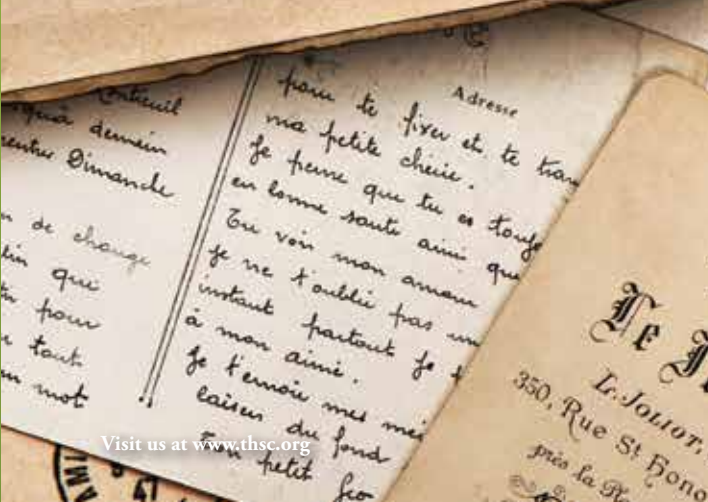 Montreuil
demain
Dimanche
de change
qui
pour
tout
mot
Adresse
pour te fixer et te
ma petite chérie.
Je pense que tu es
en bonne santé ainsi que
Tu vois mon amour
je ne t'oublie pas
instant partout je
à mon aimé.
Je t'envoie mes
baisers du fond
petit
Le
L. JOLIOT,
350, Rue St Hono
près la Pl
AMI
Visit us at www.thsc.org